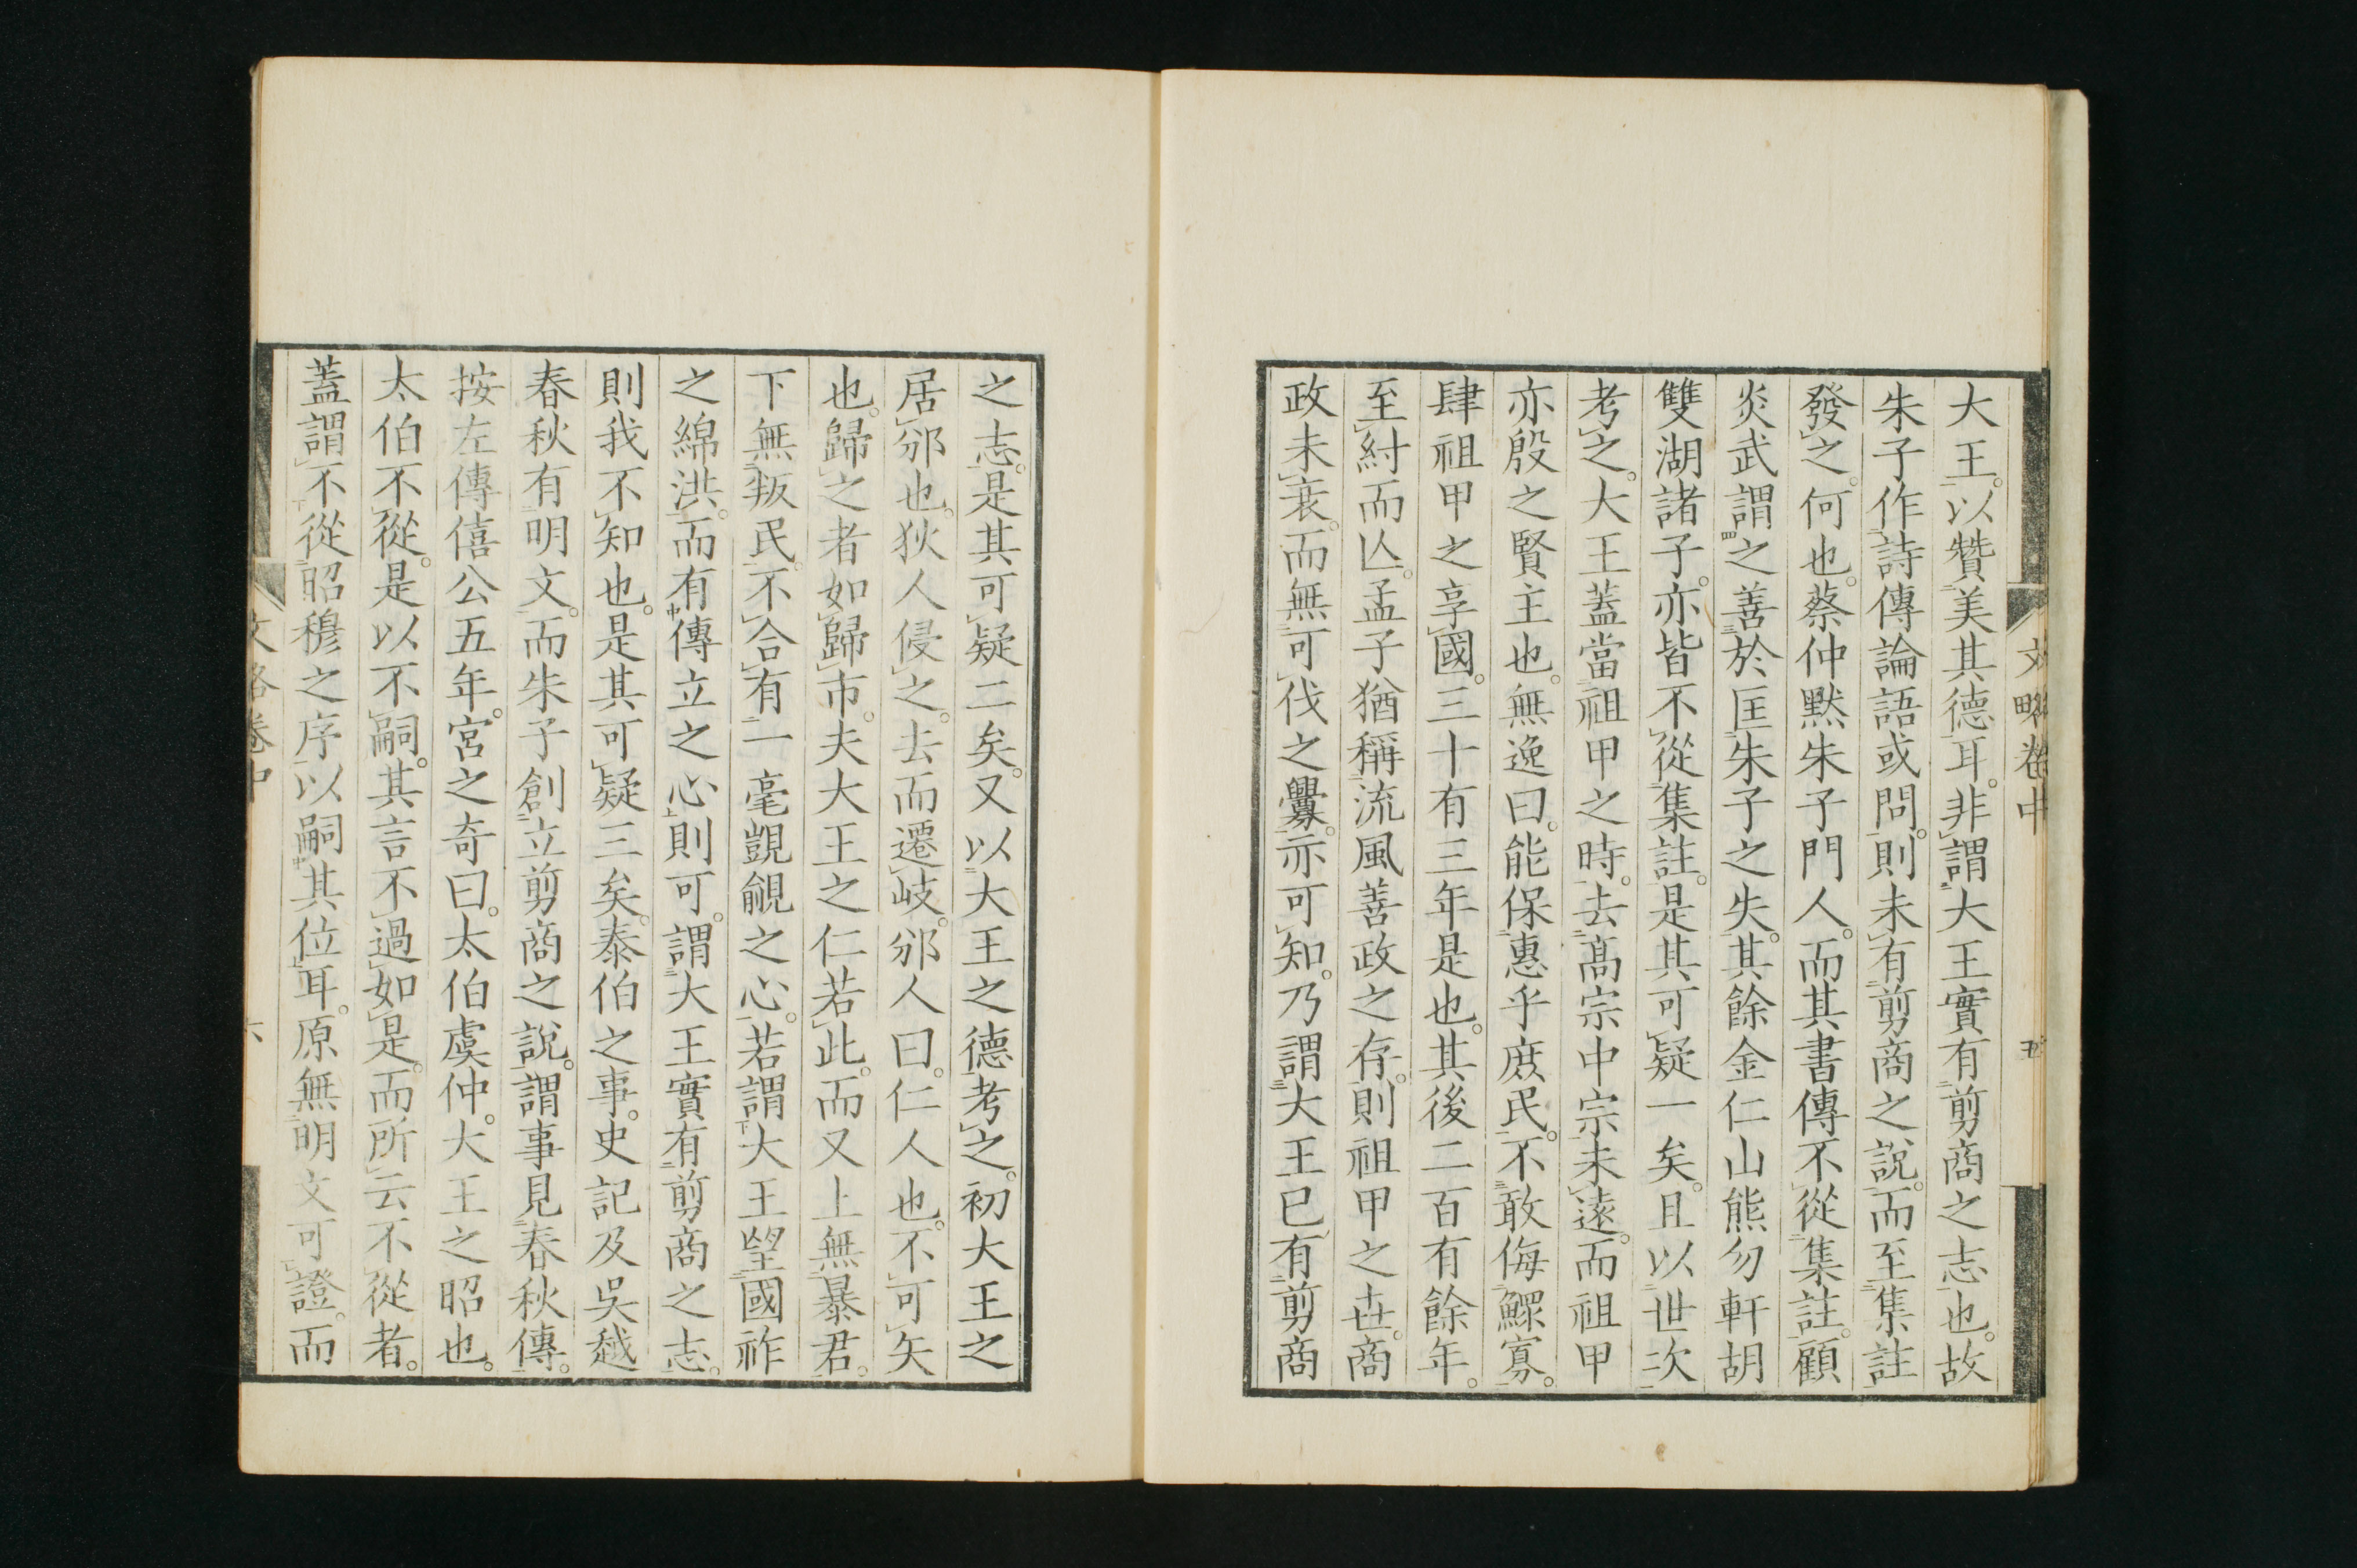 文略卷中
五
大王。以贊美其德耳。非謂大王實有剪商之志也。故
朱子作詩傳論語或問。則未有剪商之說。而至集註
發之。何也。蔡仲默朱子門人。而其書傳不從集註。顧
炎武謂之善於匡朱子之失。其餘金仁山熊勿軒胡
雙湖諸子。亦皆不從集註。是其可疑一矣。且以世次
考之。大王蓋當祖甲之時。去高宗中宗未遠。而祖甲
亦殷之賢主也。無逸曰。能保惠乎庶民。不敢侮鰥寡。
肆祖甲之享國。三十有三年是也。其後二百有餘年。
至紂而亾。孟子猶稱流風善政之存。則祖甲之世。商
政未衰。而無可伐之釁。亦可知。乃謂大王已有剪商
之志。是其可疑二矣。又以大王之德考之。初大王之
居邠也。狄人侵之。去而遷岐。邠人曰。仁人也。不可矢
也。歸之者如歸市。夫大王之仁若此。而又上無暴君。
下無叛民。不合有一毫覬覦之心。若謂大王望國祚
之綿洪。而有傳立之心。則可。謂大王實有剪商之志。
則我不知也。是其可疑三矣。泰伯之事。史記及吳越
春秋有明文。而朱子創立剪商之說。謂事見春秋傳。
按左傳僖公五年。宮之奇曰。太伯虞仲。大王之昭也。
太伯不從。是以不嗣。其言不過如是。而所云不從者。
蓋謂不從昭穆之序。以嗣其位耳。原無明文可證。而
文略卷中
六